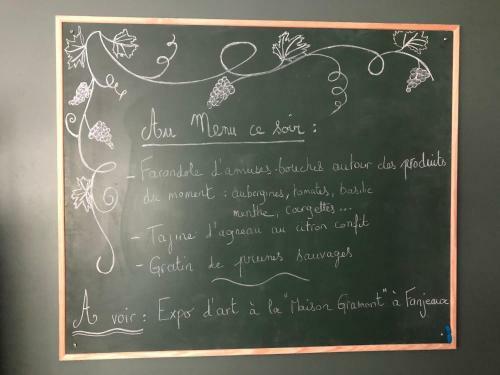 Au Menu ce soir :
- Farandole d'amuses-bouches autour des produits
du moment : aubergines, tomates, basilic
menthe, courgettes...
- Tajine d'agneau au citron confit
- Gratin de prunes sauvages
A voir : Expo d'art à la "Maison Gramont" à Fanjeaux